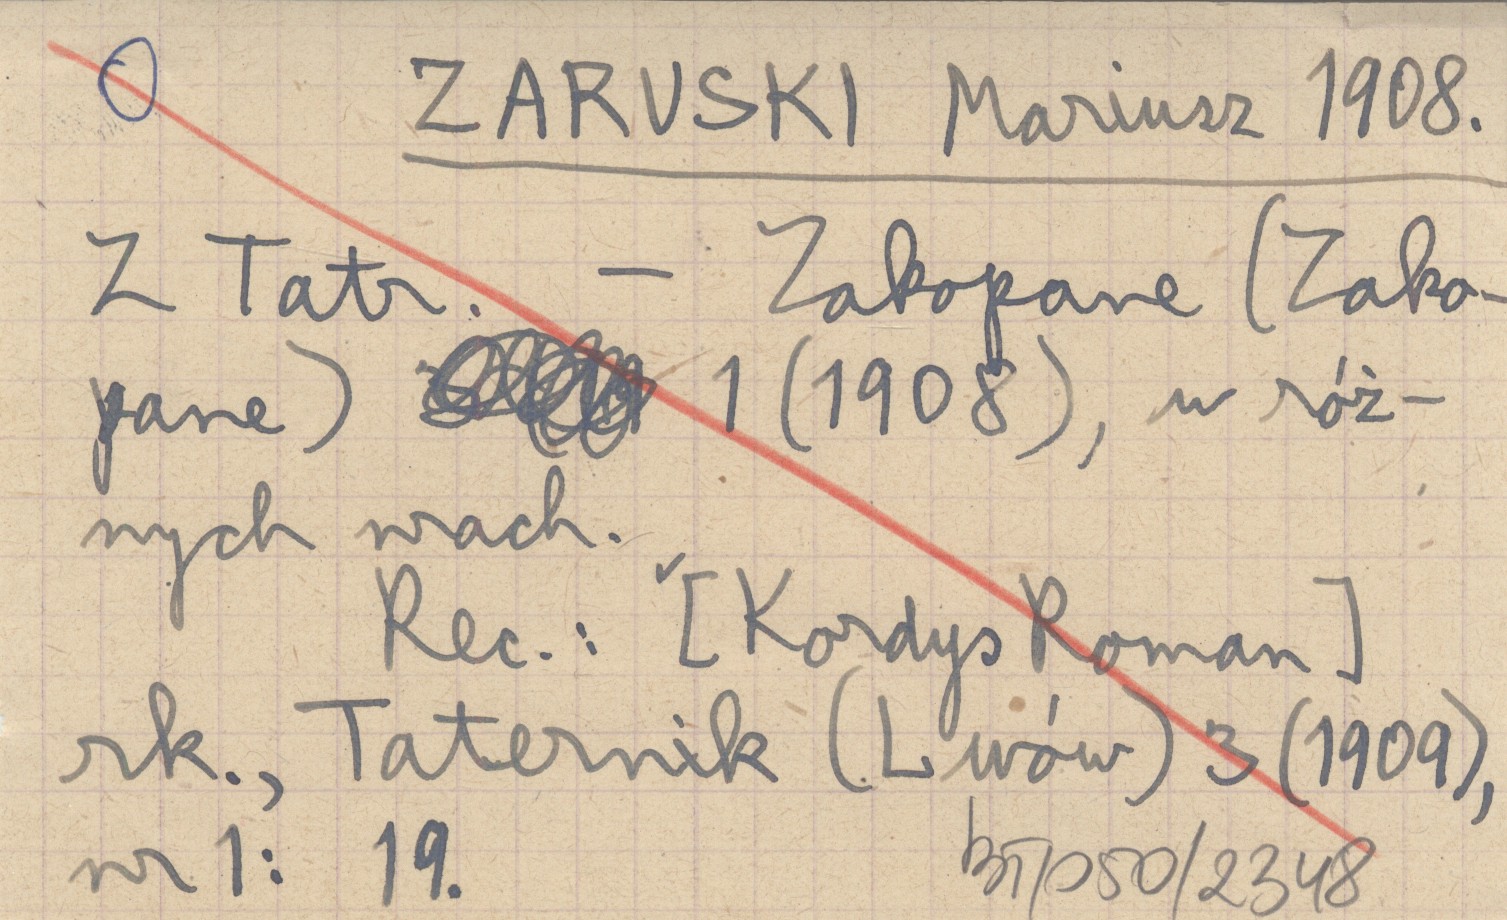 ZARUSKI Mariusz 1908.
Z Tatr. — Zakopane (Zako-
pane) 1 (1908), w róż-
nych nrach.
Rec.: [Kordys Roman]
rk., Taternik (Lwów) 3 (1909),
nr 1: 19.
BT/p50/2348